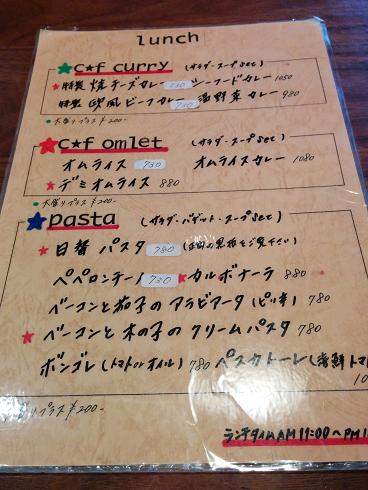 lunch
c★f curry (サラダ・スープset)
特製 焼チーズカレー シーフードカレー 1050
特製 欧風ビーフカレー 湯野菜カレー 980
大盛りプラス¥200-
c★f omlet (サラダ・スープset)
オムライス 730 オムライスカレー 1080
デミオムライス 880
大盛りプラス¥200-
pasta (サラダ・バゲット・スープset)
日替パスタ 780 (正面の黒板をご覧下さい)
ペペロンチーノ 730 カルボナーラ 880
ベーコンと茄子のアラビアータ(ピリ辛) 780
ベーコンと木の子のクリームパスタ 780
ボンゴレ(トマトorオイル) 780 ペスカトーレ(海鮮トマ
大盛りプラス¥200-
ランチタイムAM11:00〜PM